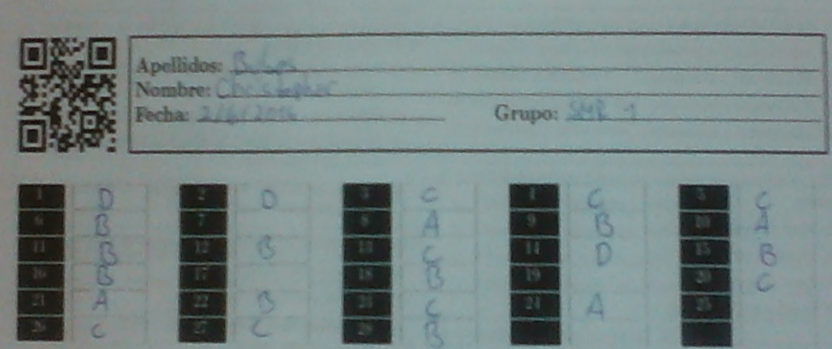 Apellidos:
Nombre: Christopher
Fecha: 2/6/2014 Grupo: SMR 1
1 D 2 D 3 C 4 C 5 C
6 B 7 8 A 9 B 10 A
11 B 12 B 13 C 14 D 15 B
16 B 17 18 B 19 20 C
21 A 22 B 23 C 24 A 25
26 C 27 C 28 B